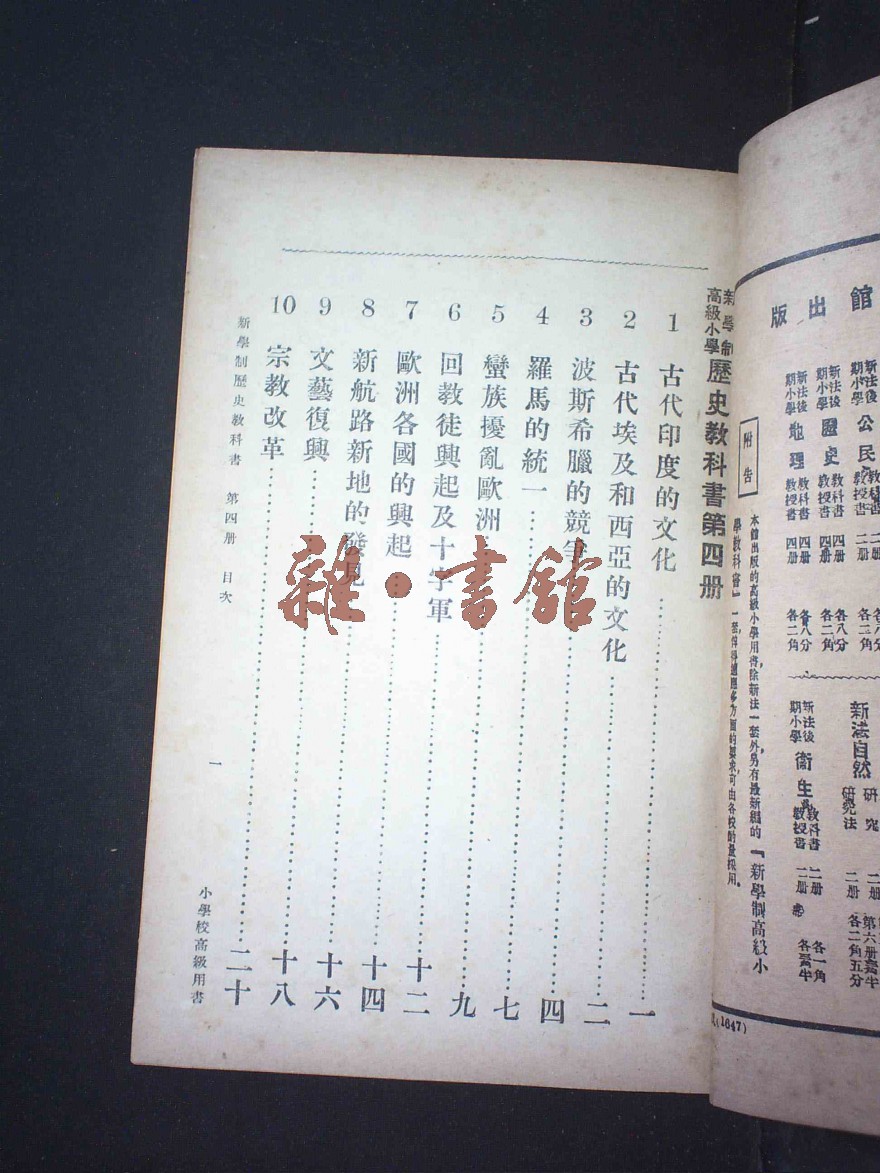 館出版
新法後期小學 公民 教科書 二册 各八分
教授書 二册 各三角
新法後期小學 歷史 教科書 四册 各八分
教授書 四册 各二角
新法後期小學 地理 教科書 四册 各八分
教授書 四册 各二角
新法自然
研究 二册
研究法 二册
新法後期小學 衞生 教科書 二册 各一角
教授書 二册
附告
本館出版的高級小學用書，除新法一套外，另有最新編的『新學制高級小
學教科書』一套，
(1647)
新學制高級小學 歷史教科書第四册
1 古代印度的文化 一
2 古代埃及和西亞的文化 二
3 波斯希臘的競爭 四
4 羅馬的統一 七
5 蠻族擾亂歐洲 九
6 回教徒興起及十字軍 十二
7 歐洲各國的興起 十四
8 新航路新地的發見 十六
9 文藝復興 十八
10 宗教改革 二十
新學制歷史教科書 第四册 目次 一 小學校高級用書
雜·書館